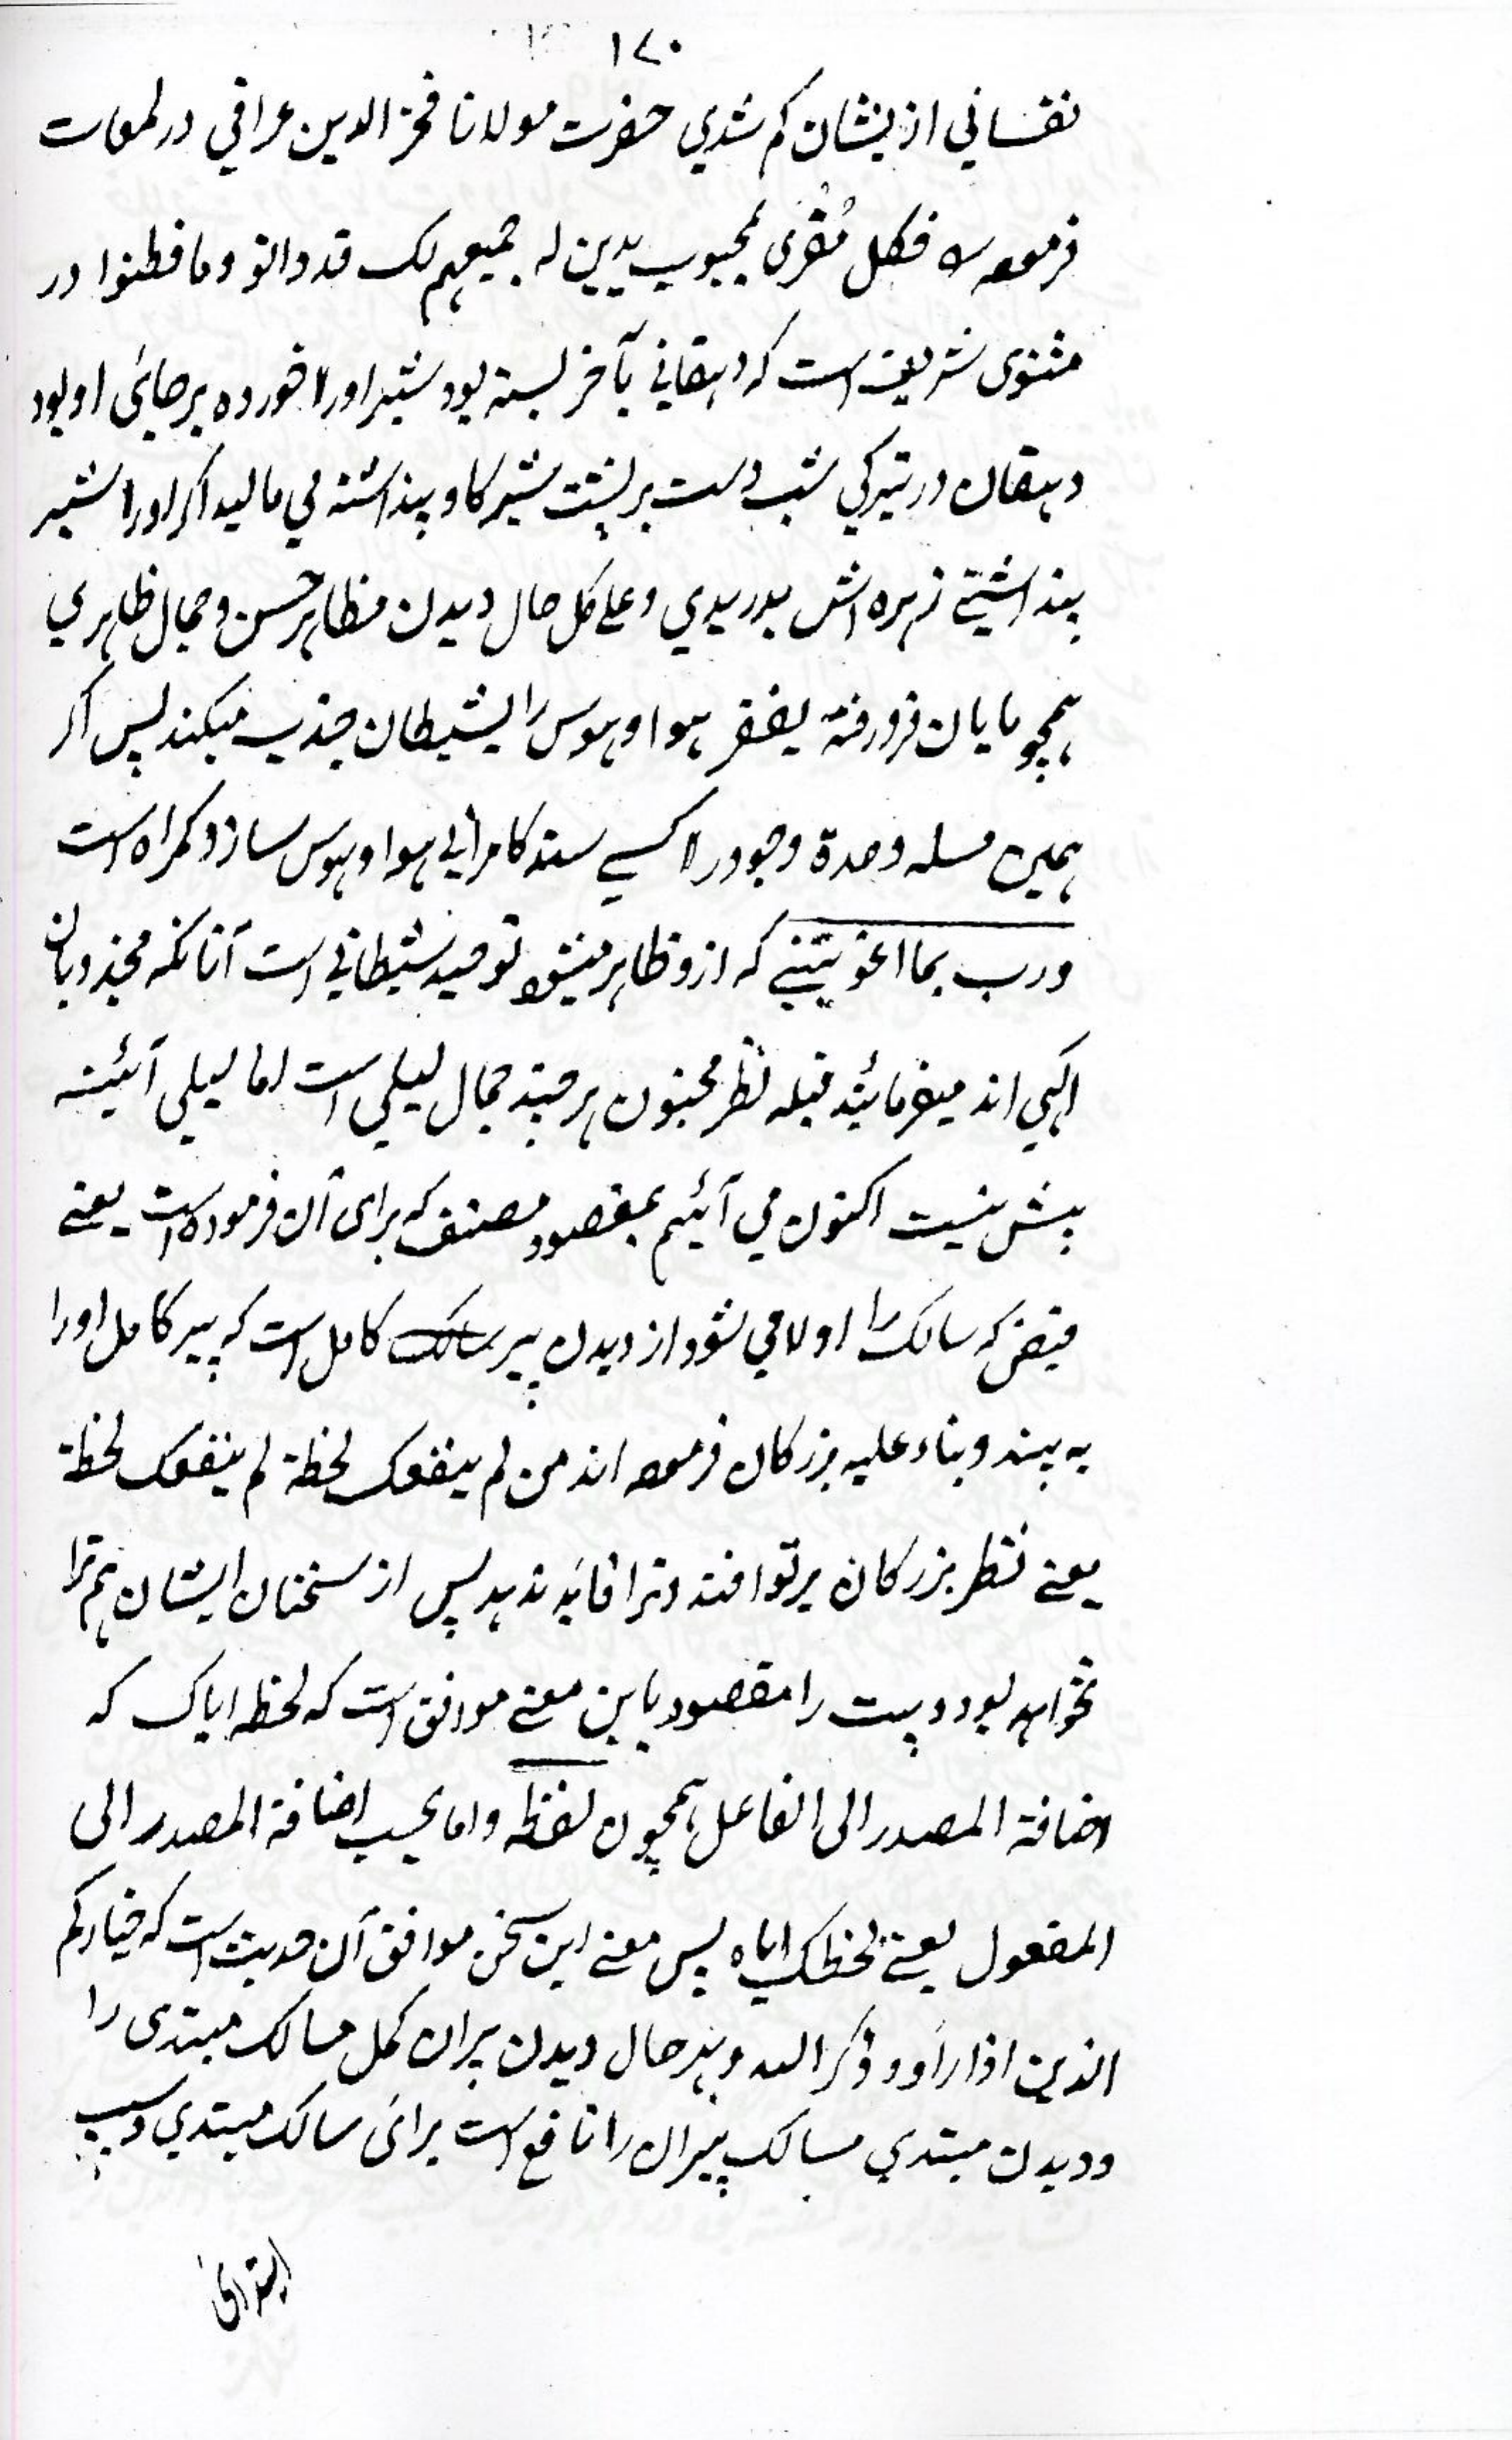 ۱۷۰
نفساني ازيشان كم شدي حضرت مولانا فخر الدين عراقي در لمعات
فرموده فكل مُغرى لمحبوب يدين له جميعهم لك قد دانو و ما فطنوا در
مثنوی شریف است که دهقاني بآخر بسته بود شير اورا خورده برجائی او بود
دهقان در تيركي شب دست بر پشت شير كاو پنداشته مي ماليد اكر اورا شير
پنداشتي زهره اش بدريدي و علے كل حال ديدن مظاهر حسن و جمال ظاهري
همچو پايان فرو رفته هوا و هوس را شيطان جذب ميكند پس اكر
همين مسله وحدة وجود را كسے سند كامرانی هوا و هوس سازد كمراه است
و رب بما اغويتني كه ازو ظاهر ميشود توحيد شيطاني است آنانكه مجذوبان
الهي اند ميفرمائيند قبله نظر مجنون هر چند جمال ليلي است اما ليلي آئينه
بيش نيست اكنون مي آئيم بمقصود مصنف كه برای آن فرموده است يعنے
فيض كه سالك را اولا مي شود از ديدن پير سالك كامل است كه پير كامل اورا
به بيند و بناء عليه بزركان فرموده اند من لم ينفعك لحظة لم ينفعك لحظة
يعنے نظر بزركان برتو افتد و ترا فائده ندهد پس از سخنان ايشان هم ترا
نخواهد بود و بيت را مقصود باين معنے موافق است كه لحظه اياك كه
اضافة المصدر الى الفاعل همچون لفظه و اما بحسب اضافة المصدر الى
المفعول يعنے لحظك اياه پس معنے اين سخن موافق آن حديث است كه خياركم
الذين اذا راَوو ذكر الله و بهر حال ديدن پيران كمل سالك مبتدى را
و ديدن مبتدي سالك پيران را نافع است برائی سالك مبتدي و سبب
ابتدائی